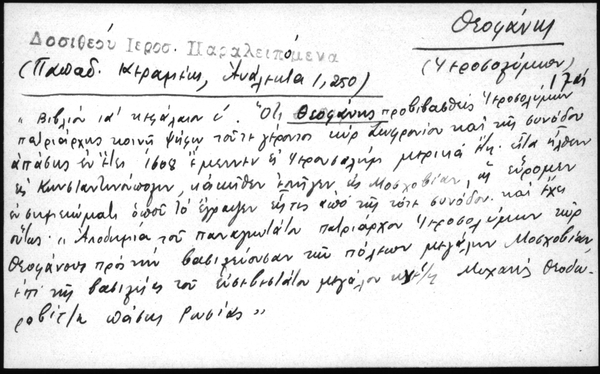 Θεοφάνης
Δοσιθεού Ιεροσ. Παραλειπόμενα
(Ἱεροσολύμων)
(Παπαδ. Κεραμέως, Ἀνάλεκτα 1, 250)
" Βιβλίον ια' κεφάλαιον έ. Ὅτι Θεοφάνης προβιβασθείς Ἱεροσολύμων
πατριάρχης κοινῇ ψήφῳ τοῦ τε γέροντος κύρ Σωφρονίου καί τῆς συνόδου
ἁπάσης ἐν ἔτει 1608 ἔμεινεν ἐν Ἱερουσαλήμ μερικά ἔτη. εἶτα ἦλθεν
εἰς Κωνσταντινούπολιν, κἀκεῖθεν ἐπῆγεν εἰς Μοσχοβίαν, ὡς εὕρομεν
ἐν σημειώματι ὁποῦ τό ἔγραψεν τις ἀπό τῆς τότε συνόδου. καί ἔχει
οὕτως. " Ἀποδημία τοῦ παναγιωτάτου πατριάρχου Ἱεροσολύμων κύρ
Θεοφάνους πρός τήν βασιλεύουσαν τῶν πόλεων μεγάλην Μοσχοβίαν,
ἐπί τῆς βασιλείας τοῦ εὐσεβεστάτου μεγάλου Μιχαήλ Θεοδω-
ροβίτζη πάσης Ρωσίας "